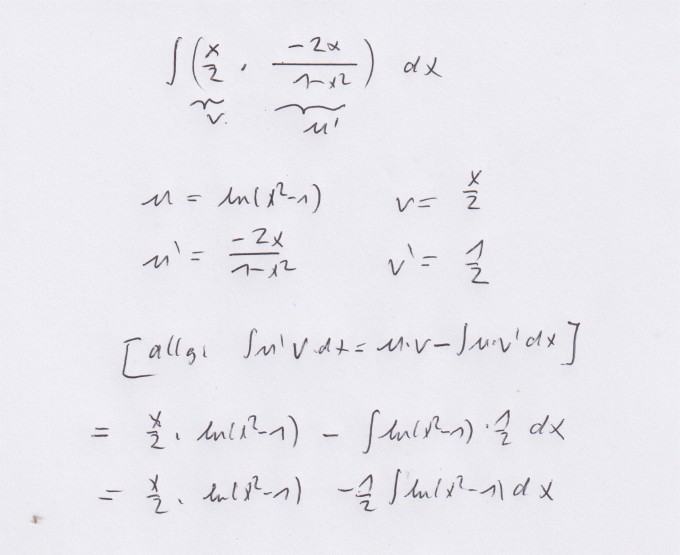 ∫ (x/2 · -2x/(1-x²)) dx
v. u'
u = ln(x²-1) v = x/2
u' = -2x/(1-x²) v' = 1/2
[allg: ∫u'v dx = u·v - ∫u·v' dx]
= x/2 · ln(x²-1) - ∫ln(x²-1) · 1/2 dx
= x/2 · ln(x²-1) - 1/2 ∫ln(x²-1) dx